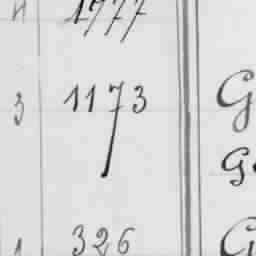 1777
3 1173 G
G
1 326 G